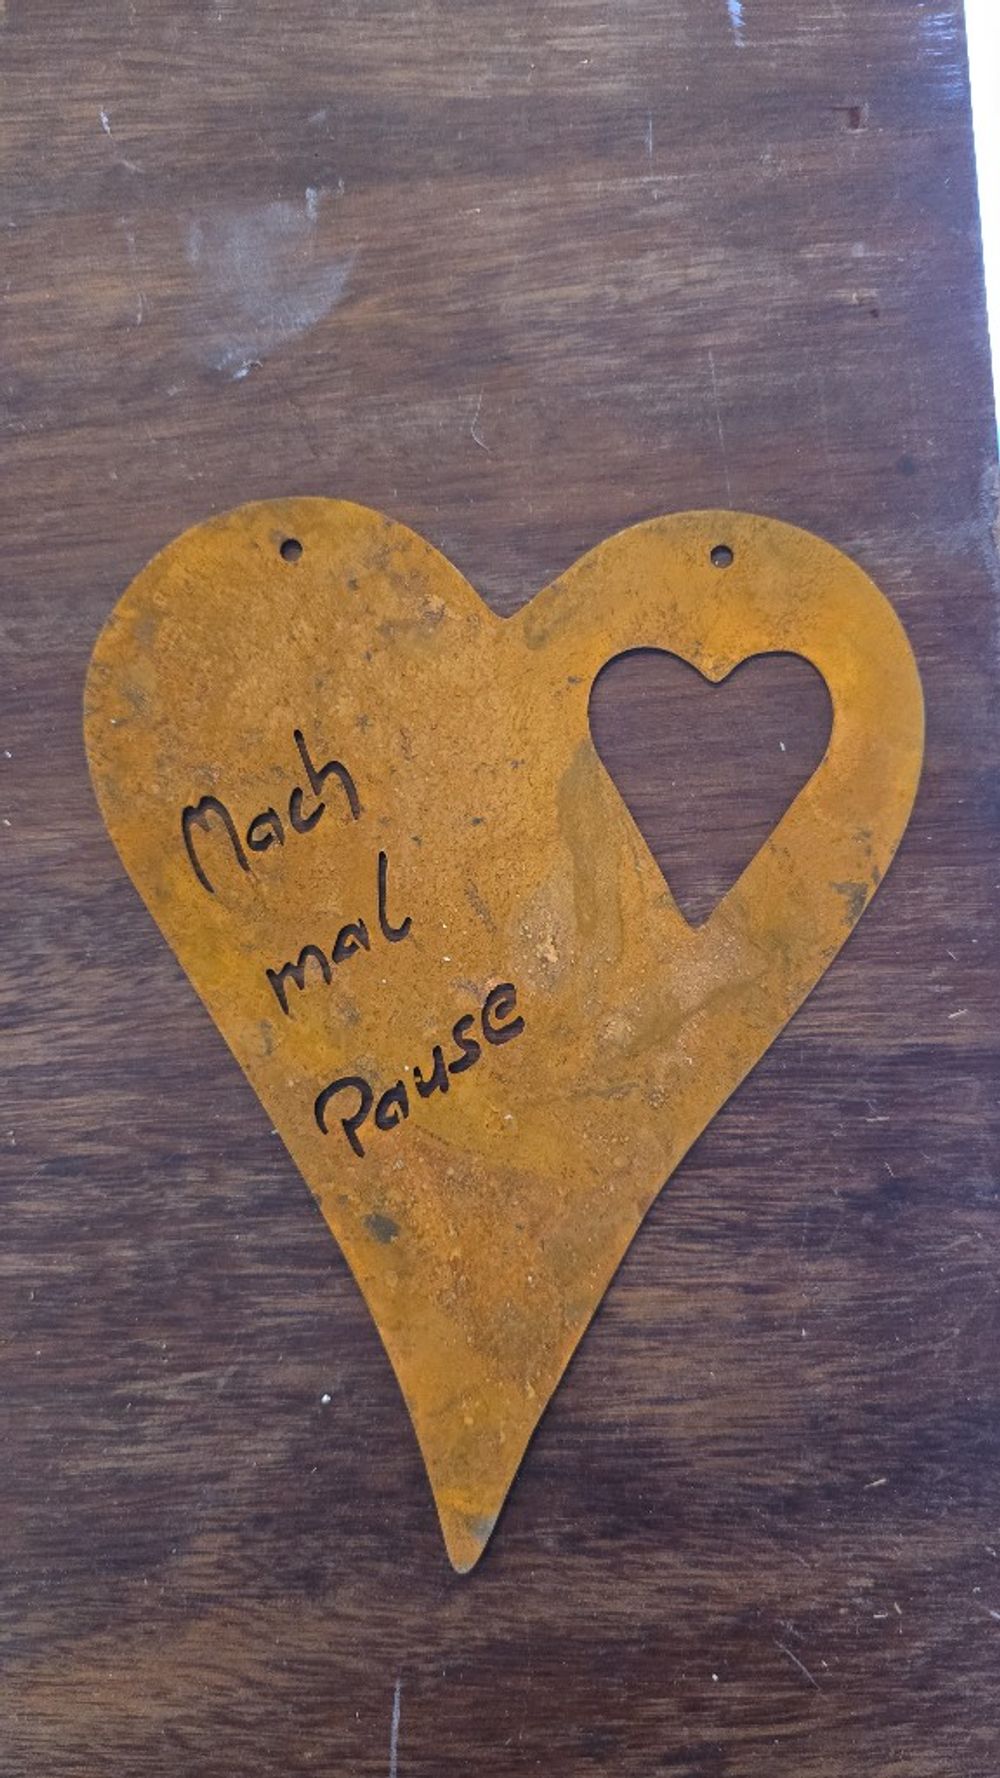 Mach
mal
Pause